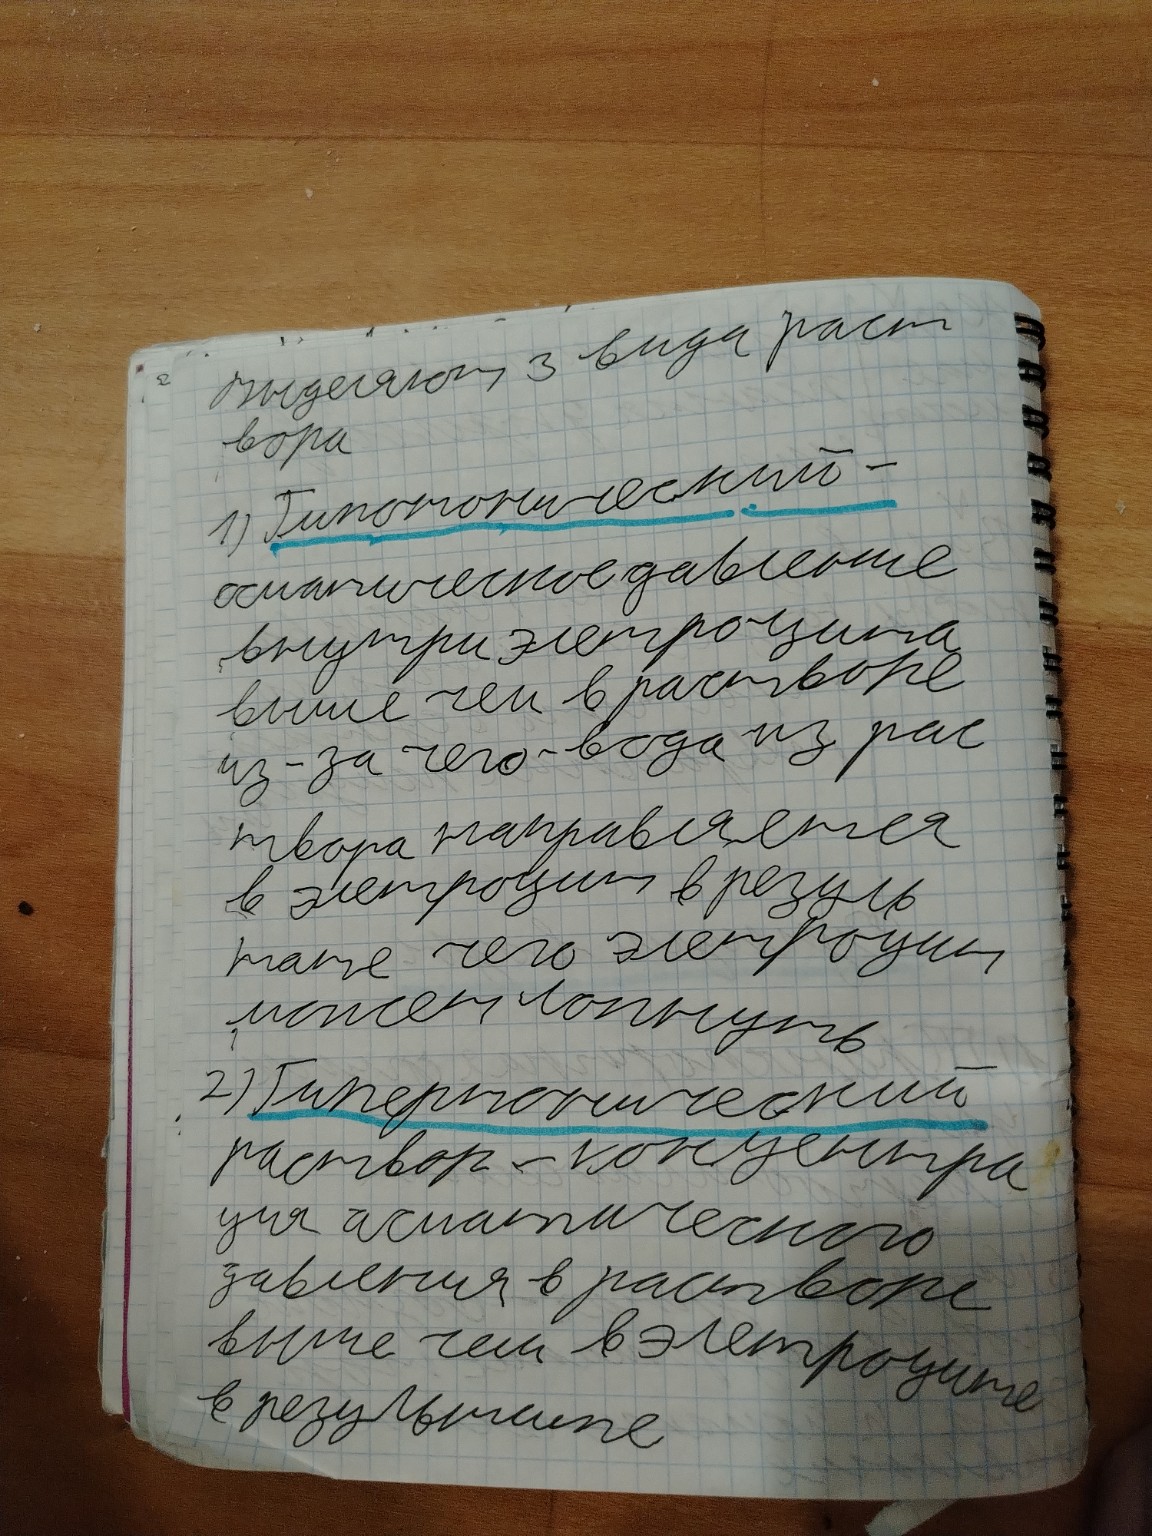 Выделяют 3 вида раст
вора
1) Гипотонический -
осматическое давление
внутри элетроцита
выше чем в растворе
из-за чего-вода из рас
твора направляется
в элетроцит в резуль
тате чего элетроцит
может лопнуть
2) Гипертонический
раствор - концентра
ция асматического
давления в растворе
выше чем в элетроците
в результате